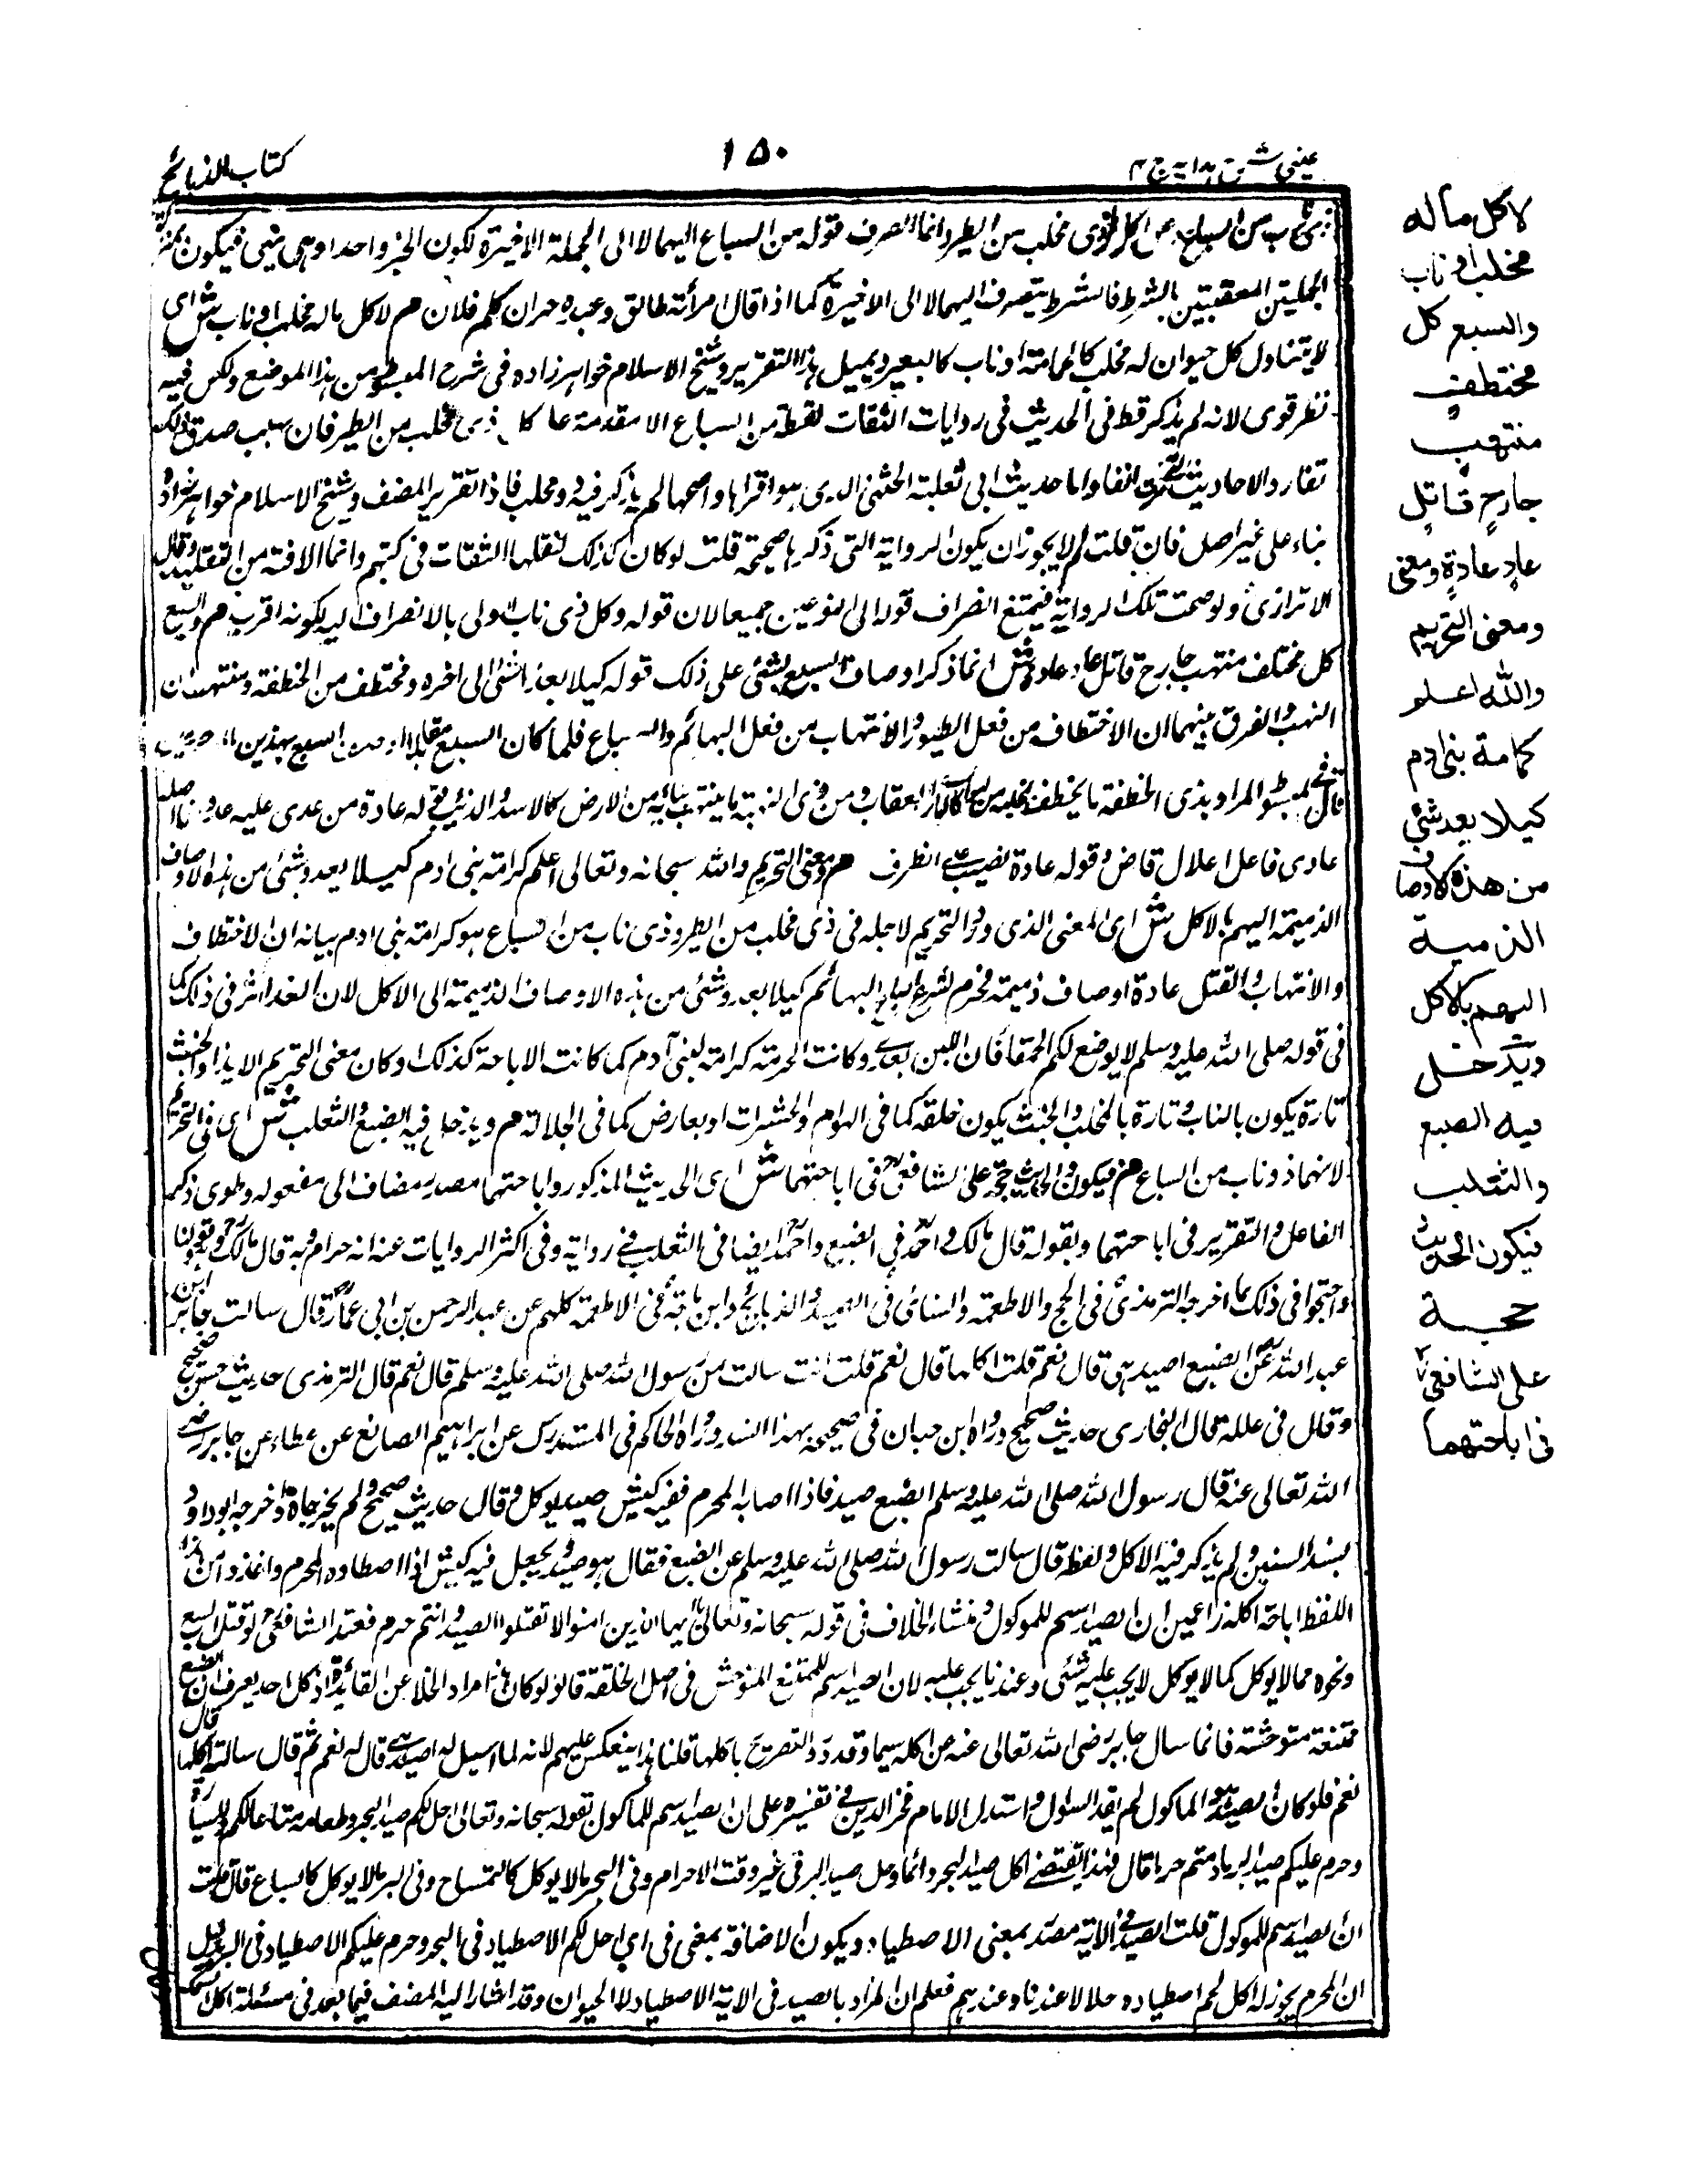 عينى شرح هدايه ج ٤
١٥٠
كتاب الذبائح
ذى ناب من السباع عن اكل ذوى مخلب من الطير وانما انصرف قوله من السباع اليهما لا الى الجملة الاخيرة لكون الخبر واحدا وهى نهى فيكون
الجملتين المعقبتين بالشرط فالشرط ينصرف اليهما لا الى الاخيرة كما اذا قال امرأته طالق وعبده حر ان كلم فلان م لا كل ماله مخلب او ناب ش اى
لا يتناول كل حيوان له مخلب كالحمامة او ناب كالبعير ويميل هذا التقرير وشيخ الاسلام خواهر زاده فى شرح المبسوط من هذا الموضع ولكن فيه
نظر قوى لانه لم يذكر قط فى الحديث فى روايات الثقات لفظة من السباع الا مقدمة على كل ذى مخلب من الطير فان بسبب صدق ذلك
الاحاديث انفا واما حديث ابى ثعلبة الخشنى الذى هو اقراها واصحها لم يذكر فيه ذو مخلب فاذا تقرير المصنف وشيخ الاسلام خواهر زاده
بناء على غير اصل فان قلت لم لا يجوز ان يكون الرواية التى ذكرها صحيحة قلت لو كان كذلك لنقلها الثقات فى كتبهم وانما الافة من التقليد وقال
الاترازى ولو صحت تلك الرواية فيمتنع انصراف قوله الى النوعين جميعا لان قوله وكل ذى ناب اولى بالانصراف اليه لكونه اقرب م والسبع
كل مختطف منتهب جارح قاتل عاد عادة ش انما ذكر اوصاف السبع ليبنى على ذلك قوله كيلا يعد شئ الى اخره ومختطف من الخطفة ومنتهب من
النهب والفرق بينهما ان الاختطاف من فعل الطيور والانتهاب من فعل البهائم والسباع فلما كان السبع
قال فى المبسوط المراد بذى الخطفة ما يختطف بمخلبه من الهواء كالبازى والعقاب ومن ذى النهبة ما ينتهب بنابه من الارض كالاسد والذئب قوله عادة من عدى عليه
عادى فاعل اعلال قاض وقوله عادة نصب على الظرف م ومعنى التحريم والله سبحانه وتعالى اعلم كرامة بنى ادم كيلا يعدو شئ من هذه الاوصاف
الذميمة اليهم بالاكل ش اى المعنى الذى ورد التحريم لاجله فى ذى مخلب من الطير وذى ناب من السباع هو كرامة بنى ادم بيانه ان الاختطاف
والانتهاب والقتل عادة اوصاف ذميمة فحرم الشرع البهائم كيلا يعدو شئ من هذه الاوصاف الذميمة الى الاكل لان للغذاء اثر فى ذلك كما
فى قوله صلى الله عليه وسلم لا يرضع لكم الحمقا فان اللبن يعدى وكانت الحرمة كرامة لبنى آدم كما كانت الاباحة كذلك او كان معنى التحريم الايذاء والخبث
تارة يكون بالناب وتارة بالمخلب والخبث يكون خلقة كما فى الهوام والحشرات او بعارض كما فى الجلالة م ويدخل فيه الضبع والثعلب ش اى فى التحريم
لانهما ذو ناب من السباع م فيكون الحديث حجة على الشافعى فى اباحتهما ش اى الحديث المذكور واباحتهما مصدر مضاف الى مفعوله وطوى ذكر
الفاعل والتقرير فى اباحتهما وبقوله قال مالك واحمد فى الضبع واحمد ايضا فى الثعلب فى رواية وفى اكثر الروايات عنه انه حرام وبه قال مالك وهو قولنا
واحتجوا فى ذلك بما اخرجه الترمذى فى الحج والاطعمة والنسائى فى الصيد والذبائح وابن ماجة فى الاطعمة كلهم عن عبد الرحمن بن ابى عمار قال سالت جابر بن
عبد الله عن الضبع اصيد هى قال نعم قلت اكلها قال نعم قلت انت سالت من رسول الله صلى الله عليه وسلم قال نعم قال الترمذى حديث حسن صحيح
وقال فى علله قال البخارى حديث صحيح ورواه ابن حبان فى صحيحه بهذا السند ورواه الحاكم فى المستدرك عن ابراهيم الصائغ عن عطاء عن جابر رضى
الله تعالى عنه قال رسول الله صلى الله عليه وسلم الضبع صيد فاذا اصابه المحرم ففيه كبش ويوكل وقال حديث صحيح ولم يخرجاه واخرجه ابو داود
بسند السنين ولم يذكر فيه الاكل ولفظه قال سالت رسول الله صلى الله عليه وسلم عن الضبع فقال هو صيد ويجعل فيه كبش اذا اصطاده المحرم واخذوا من هذا
اللفظ اباحة اكله زاعمين ان الصيد اسم للموكول ومنشاء الخلاف فى قوله سبحانه وتعالى يا ايها الذين امنوا لا تقتلوا الصيد وانتم حرم فعند الشافعى لو قتل السبع
ونحوه مما لا يوكل كما لا يوكل لا يجب عليه شئ وعندنا يجب عليه لان الصيد اسم للممتنع المتوحش فى اصل الخلقة قالوا لو كان هذا مراد الخلا عن الفائدة اذ كل احد يعرف ان الضبع
ممتنعة متوحشة فانما سال جابر رضى الله تعالى عنه عن اكله سيما وقد ورد التصريح باكلها قلنا هذا ينعكس عليهم لانه لما سئل له اصيد هى قال له نعم ثم قال سالته اكلها قال
نعم فلو كان الصيد هو الماكول لم يفد السئول واستدل الامام فخر الدين فى تفسيره على ان الصيد اسم للماكول بقوله سبحانه وتعالى احل لكم صيد البحر وطعامه متاعا لكم وللسيارة
وحرم عليكم صيد البر ما دمتم حرما قال فهذا يقتضى اكل صيد البحر دائما وحل صيد البر فى غير وقت الاحرام وفى البحر ما لا يوكل كالتمساح وفى البر ما لا يوكل كالسباع قال
ان الصيد اسم للموكول قلت الصيد فى الاية مصدر بمعنى الاصطياد ويكون الاضافة بمعنى فى اى احل لكم الاصطياد فى البحر وحرم عليكم الاصطياد فى البر
ان المحرم يجوز له اكل لحم اصطياده حلالا عندنا وعندهم فعلم ان المراد بالصيد فى الاية الاصطياد لا الحيوان وقد اشار اليه المصنف فيما بعد فى مسئلة اكل
لا كل ما له
مخلب او ناب
والسبع كل
مختطف
منتهب
جارح قاتل
عاد عادة ومعنى
ومعنى التحريم
والله اعلم
كرامة بنى ادم
كيلا يعد شئ
من هذه الاوصاف
الذميمة
اليهم بالاكل
ويدخل
فيه الضبع
والثعلب
فيكون الحديث
حجة
على الشافعى
فى اباحتهما